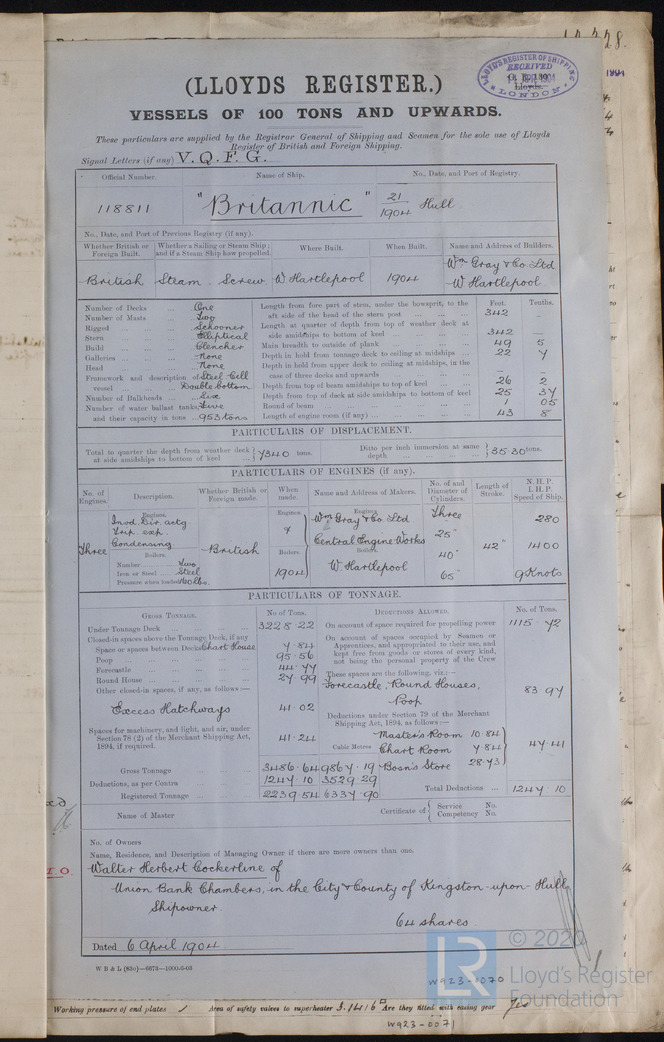 (LLOYDS REGISTER.)
LLOYD'S REGISTER OF SHIPPING
RECEIVED
1904
LONDON
VESSELS OF 100 TONS AND UPWARDS.
These particulars are supplied by the Registrar General of Shipping and Seamen for the sole use of Lloyds
Register of British and Foreign Shipping.
Signal Letters (if any) V. Q. F. G.
Official Number. Name of Ship. No., Date, and Port of Registry.
118811 "Britannic" 21/1904 Hull
No., Date, and Port of Previous Registry (if any).
Whether British or Foreign Built. Whether a Sailing or Steam Ship; and if a Steam Ship how propelled. Where Built. When Built. Name and Address of Builders.
British Steam Screw W Hartlepool 1904 Wm Gray & Co. Ltd W Hartlepool
Number of Decks One
Number of Masts Two
Rigged Schooner
Stern Elliptical
Build Clencher
Galleries None
Head None
Framework and description of vessel Steel Cell Double bottom
Number of Bulkheads Six
Number of water ballast tanks, and their capacity in tons Five 953 tons
Feet. Tenths.
Length from fore part of stem, under the bowsprit, to the aft side of the head of the stern post 342 –
Length at quarter of depth from top of weather deck at side amidships to bottom of keel 342 –
Main breadth to outside of plank 49 5
Depth in hold from tonnage deck to ceiling at midships 22 7
Depth in hold from upper deck to ceiling at midships, in the case of three decks and upwards – –
Depth from top of beam amidships to top of keel 26 2
Depth from top of deck at side amidships to bottom of keel 25 37
Round of beam 1 05
Length of engine room (if any) 43 8
PARTICULARS OF DISPLACEMENT.
Total to quarter the depth from weather deck at side amidships to bottom of keel 7340 tons. Ditto per inch immersion at same depth 35.30 tons.
PARTICULARS OF ENGINES (if any).
No. of Engines. Description. Whether British or Foreign made. When made. Name and Address of Makers. No. of and Diameter of Cylinders. Length of Stroke. N. H. P. I. H. P. Speed of Ship.
Engines. Engines Engines.
Three Invd. Dir. actg Trip. exp. Condensing British Wm Gray & Co. Ltd Three 280
Central Engine Works 25" 42" 1400
Boilers. Boilers Boilers.
W Hartlepool 40" 65" 9 Knots
Number Two
Iron or Steel Steel 1904
Pressure when loaded 160 lbs.
PARTICULARS OF TONNAGE.
GROSS TONNAGE. No. of Tons. DEDUCTIONS ALLOWED. No. of Tons.
Under Tonnage Deck 3228.22
Closed-in spaces above the Tonnage Deck, if any
Space or spaces between Decks Chart House 7.84
Poop 95.56
Forecastle 44.77
Round House 27.99
Other closed-in spaces, if any, as follows:—
Excess Hatchways 41.02
Spaces for machinery, and light, and air, under Section 78 (2) of the Merchant Shipping Act, 1894, if required. 41.24
On account of space required for propelling power 1115.72
On account of spaces occupied by Seamen or Apprentices, and appropriated to their use, and kept free from goods or stores of every kind, not being the personal property of the Crew
These spaces are the following, viz.:—
Forecastle, Round Houses, Poop 83.97
Deductions under Section 79 of the Merchant Shipping Act, 1894, as follows:—
Master's Room 10.84
Cubic Metres Chart Room 7.84 47.41
Bosn's Store 28.73
Gross Tonnage 3486.64 9867.19
Deductions, as per Contra 1247.10 3529.29
Registered Tonnage 2239.54 6337.90
Total Deductions 1247.10
Name of Master Certificate of Service No. Competency No.
No. of Owners
Name, Residence, and Description of Managing Owner if there are more owners than one.
Walter Herbert Cockerline of
Union Bank Chambers, in the City & County of Kingston-upon-Hull
Shipowner
64 shares
Dated 6 April 1904
W B & L (83o)—6673—1000-6-03
© 2020
Lloyd's Register
Foundation
LR
W923-1070
Working pressure of end plates Area of safety valves to superheater 3.1416 Are they fitted with easing gear Yes
W923-0071